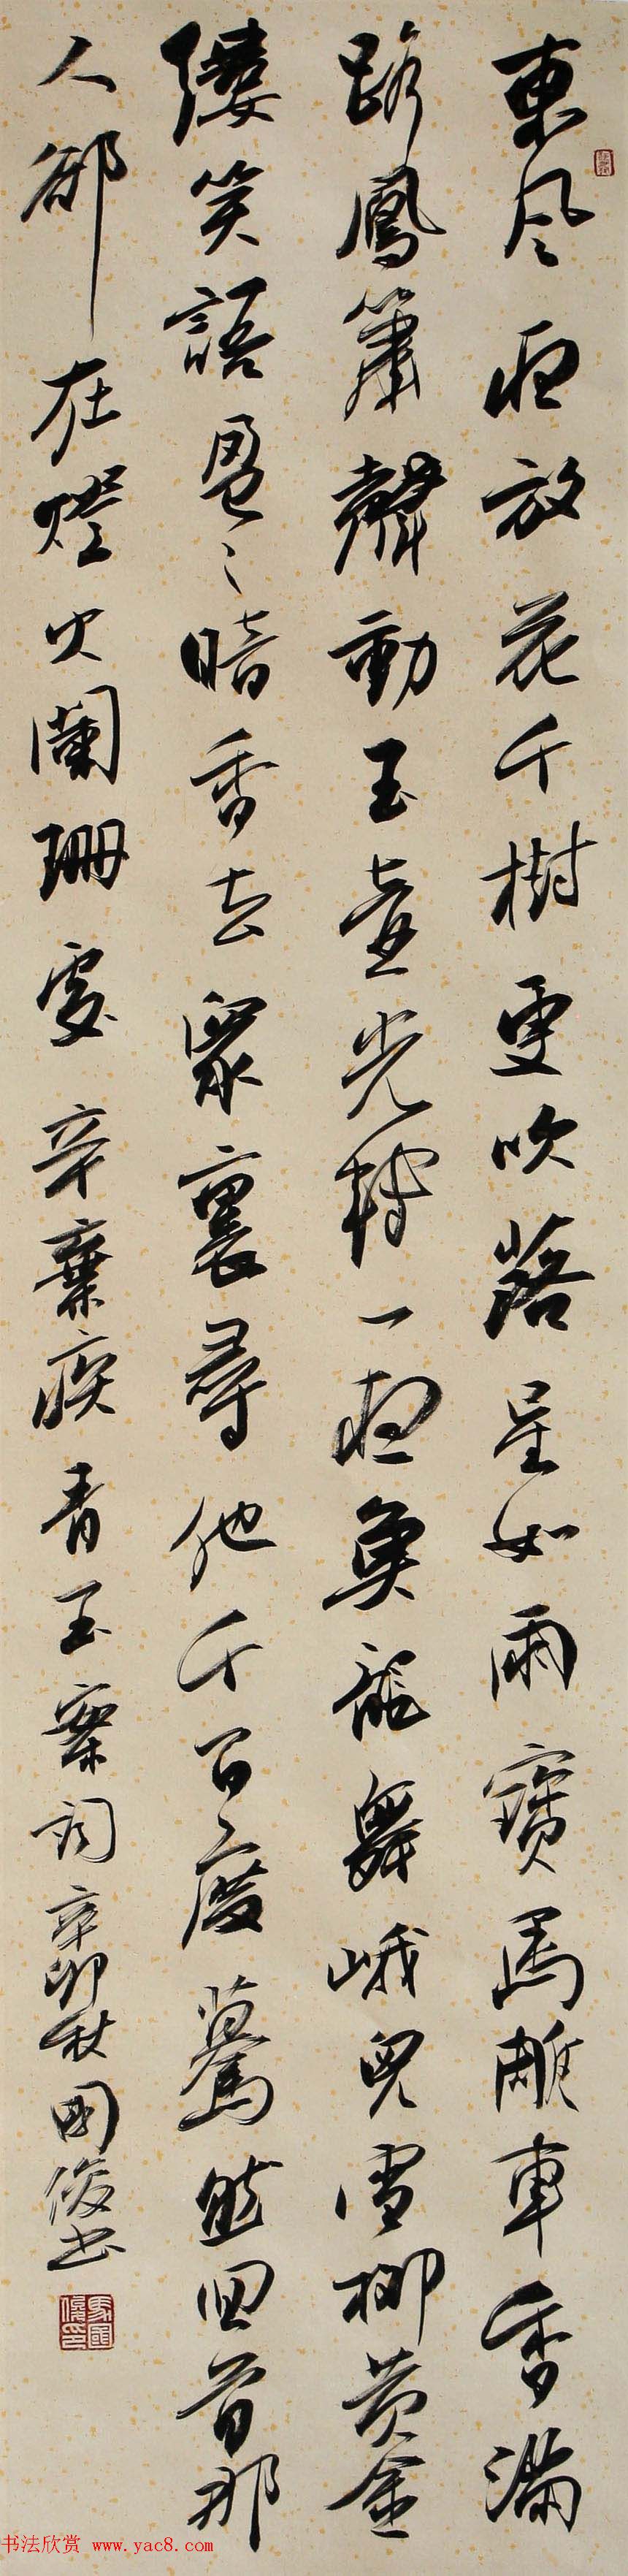 東风夜放花千樹更吹落星如雨寶馬雕車香滿
路鳳簫聲動玉壺光轉一夜魚龍舞峨兒雪柳黄金
縷笑語盈々暗香去衆裏尋他千百度驀然回首那
人郤在燈火闌珊處 辛棄疾青玉案詞 辛卯秋國俊書
馬國俊印
书法欣赏 www.yac8.com